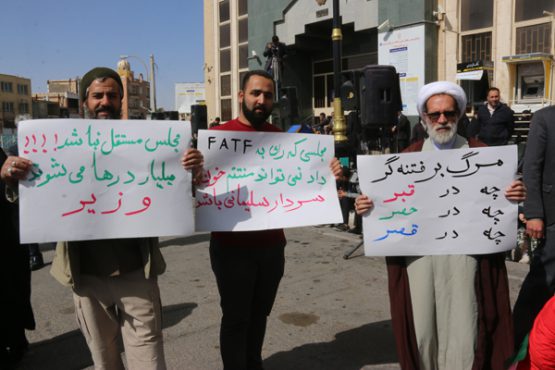 مجلس مستقل نباشد!!!!
میلیاردرها می شوند
وزیر
مجلسی که رای به FATF
داد نمی تواند منتقم خون
سردار سلیمانی باشد
مرگ بر فتنه گر
چه در قبر
چه در حصر
چه در قصر